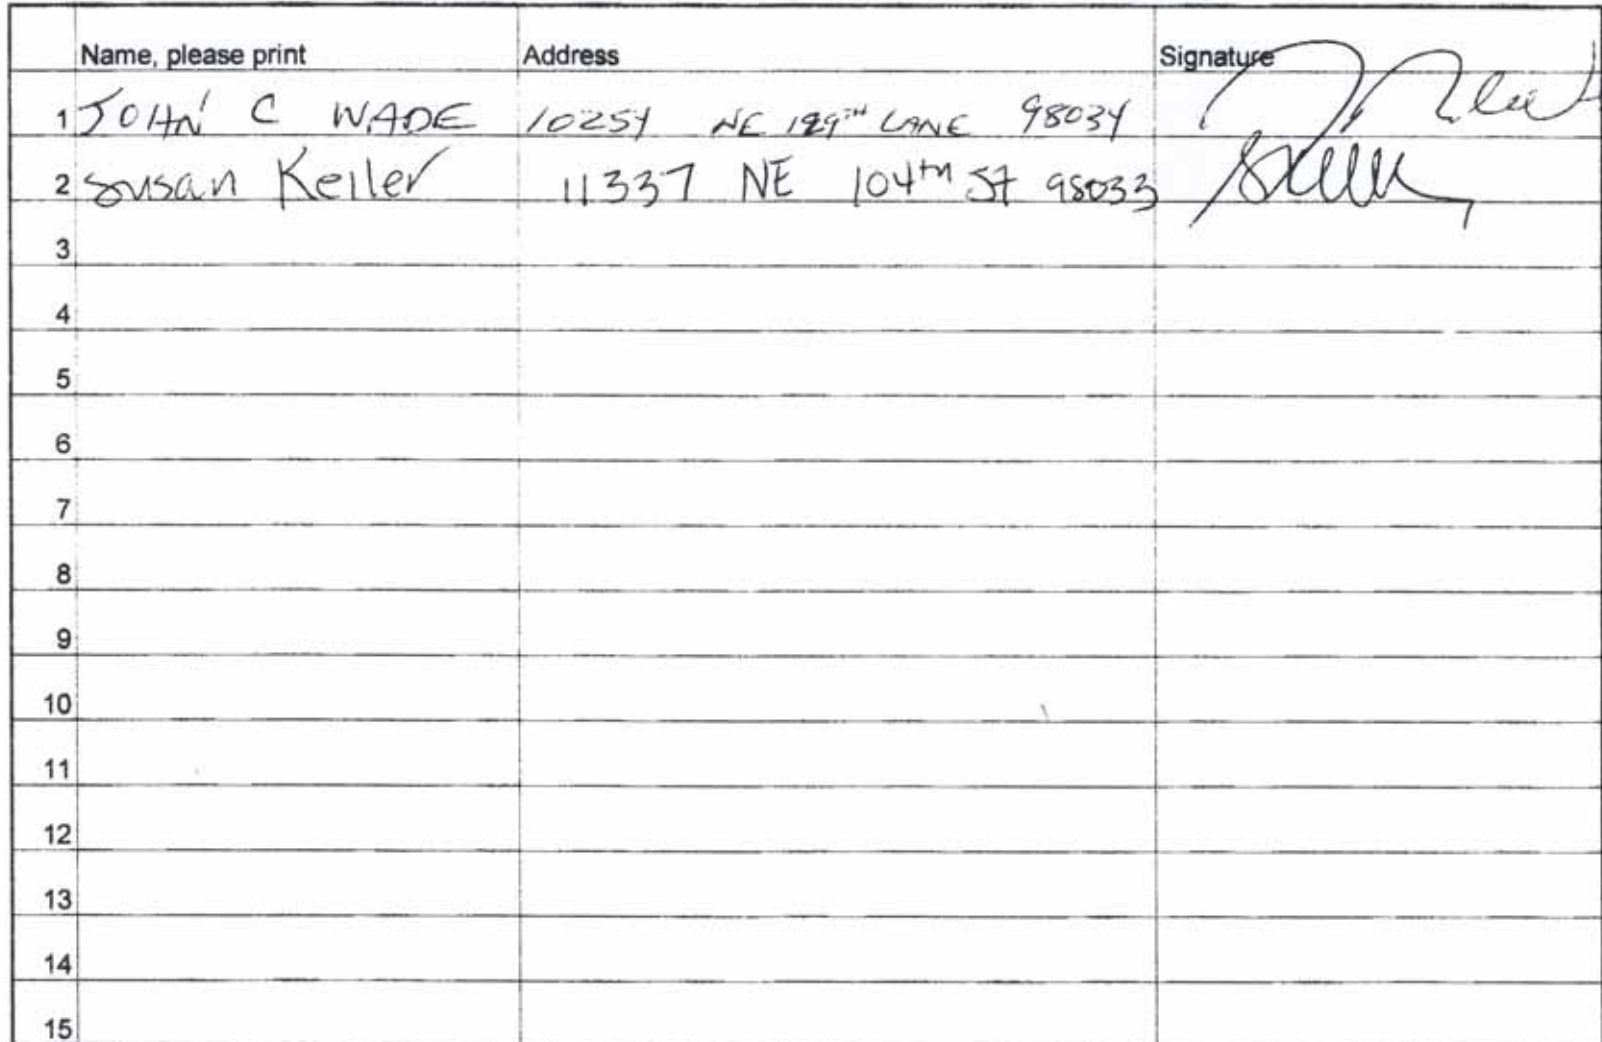 Name, please print Address Signature
1 JOHN C WADE 10254 NE 129TH LANE 98034
2 Susan Keiler 11337 NE 104th St 98033
3
4
5
6
7
8
9
10
11
12
13
14
15